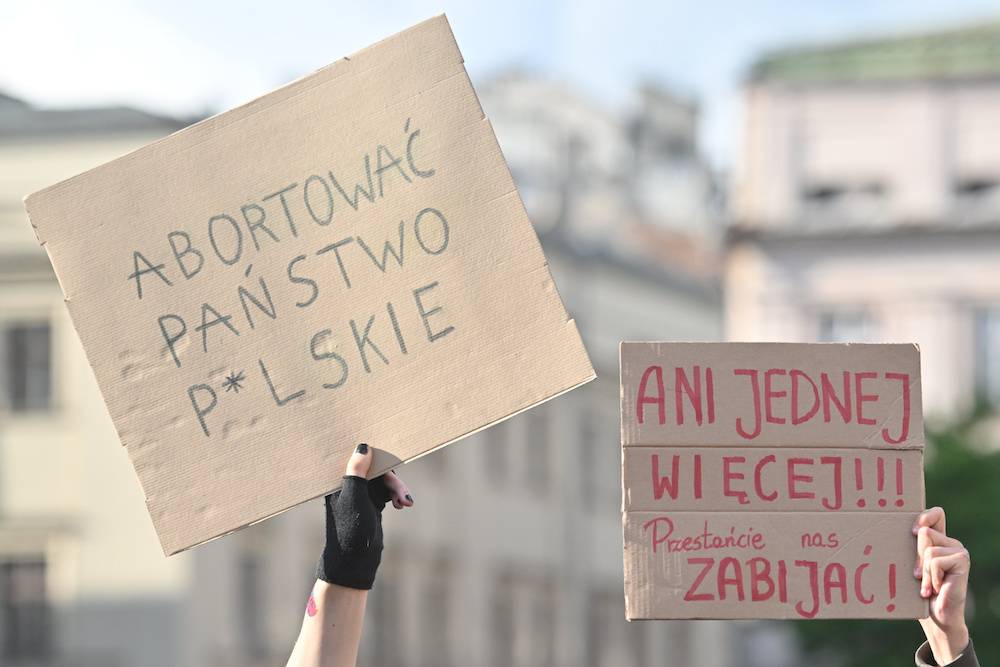 ABORTOWAĆ
PAŃSTWO
P*LSKIE
ANI JEDNEJ
WIĘCEJ!!!
Przestańcie nas
ZABIJAĆ!